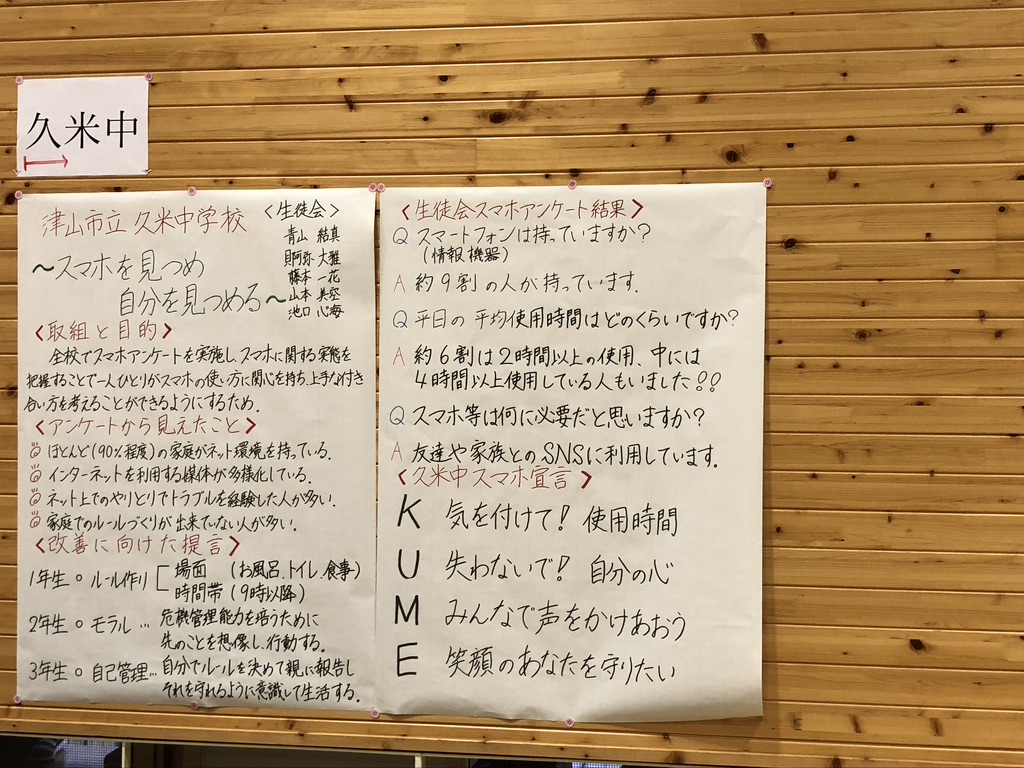 久米中
津山市立 久米中学校
<生徒会>
青山 結真
貝阿弥 大雅
藤本 一花
山本 美空
池口 心海
～スマホを見つめ
自分を見つめる～
<取組と目的>
全校でスマホアンケートを実施し、スマホに関する実態を
把握することで一人ひとりがスマホの使い方に関心を持ち、上手な付き
合い方を考えることができるようにするため。
<アンケートから見えたこと>
ほとんど(90%程度)の家庭がネット環境を持っている。
インターネットを利用する媒体が多様化している。
ネット上でのやりとりでトラブルを経験した人が多い。
家庭でのルールづくりが出来ていない人が多い。
<改善に向けた提言>
1年生。ルール作り
場面 (お風呂、トイレ、食事)
時間帯 (9時以降)
2年生。モラル… 危機管理能力を培うために
先のことを想像し、行動する。
3年生。自己管理… 自分でルールを決めて親に報告し
それを守れるように意識して生活する。
<生徒会スマホアンケート結果>
Q スマートフォンは持っていますか?
(情報機器)
A 約9割の人が持っています。
Q 平日の平均使用時間はどのくらいですか?
A 約6割は2時間以上の使用、中には
4時間以上使用している人もいました!!
Q スマホ等は何に必要だと思いますか?
A 友達や家族とのSNSに利用しています。
<久米中スマホ宣言>
K 気を付けて! 使用時間
U 失わないで! 自分の心
M みんなで声をかけあおう
E 笑顔のあなたを守りたい